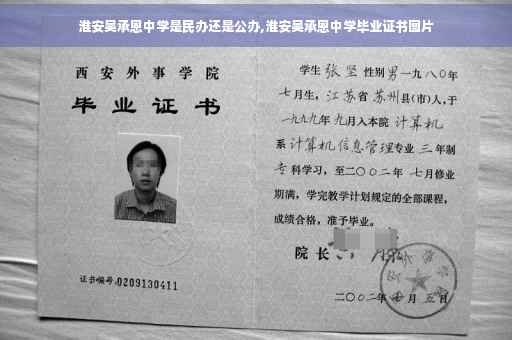 淮安吴承恩中学是民办还是公办,淮安吴承恩中学毕业证书图片
西安外事学院
毕业证书
证书编号:0209130411
学生 张坚 性别 男 一九八〇年
七月生, 江苏省 苏州县(市)人,于
一九九九年 九月入本院 计算机
系 计算机信息管理专业 三 年制
专 科学习,至二〇〇二年 七月修业
期满,学完教学计划规定的全部课程,
成绩合格,准予毕业。
院长
二〇〇二年 七月 五日